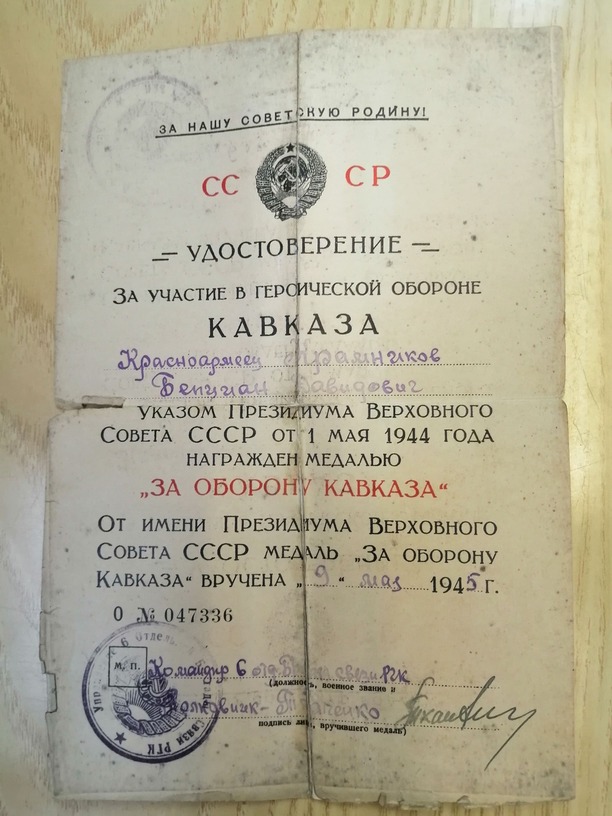 ЗА НАШУ СОВЕТСКУЮ РОДИНУ!
СС СР
УДОСТОВЕРЕНИЕ
ЗА УЧАСТИЕ В ГЕРОИЧЕСКОЙ ОБОРОНЕ
КАВКАЗА
Красноармеец Крамников
Бенциан Давидович
УКАЗОМ ПРЕЗИДИУМА ВЕРХОВНОГО
СОВЕТА СССР ОТ 1 МАЯ 1944 ГОДА
НАГРАЖДЕН МЕДАЛЬЮ
„ЗА ОБОРОНУ КАВКАЗА“
ОТ ИМЕНИ ПРЕЗИДИУМА ВЕРХОВНОГО
СОВЕТА СССР МЕДАЛЬ „ЗА ОБОРОНУ
КАВКАЗА“ ВРУЧЕНА „9“ мая 1945 г.
О № 047336
М. П.
Командир 6 связи РГК
(должность, военное звание и
Полковник
подпись лица, вручившего медаль)
связи РГК